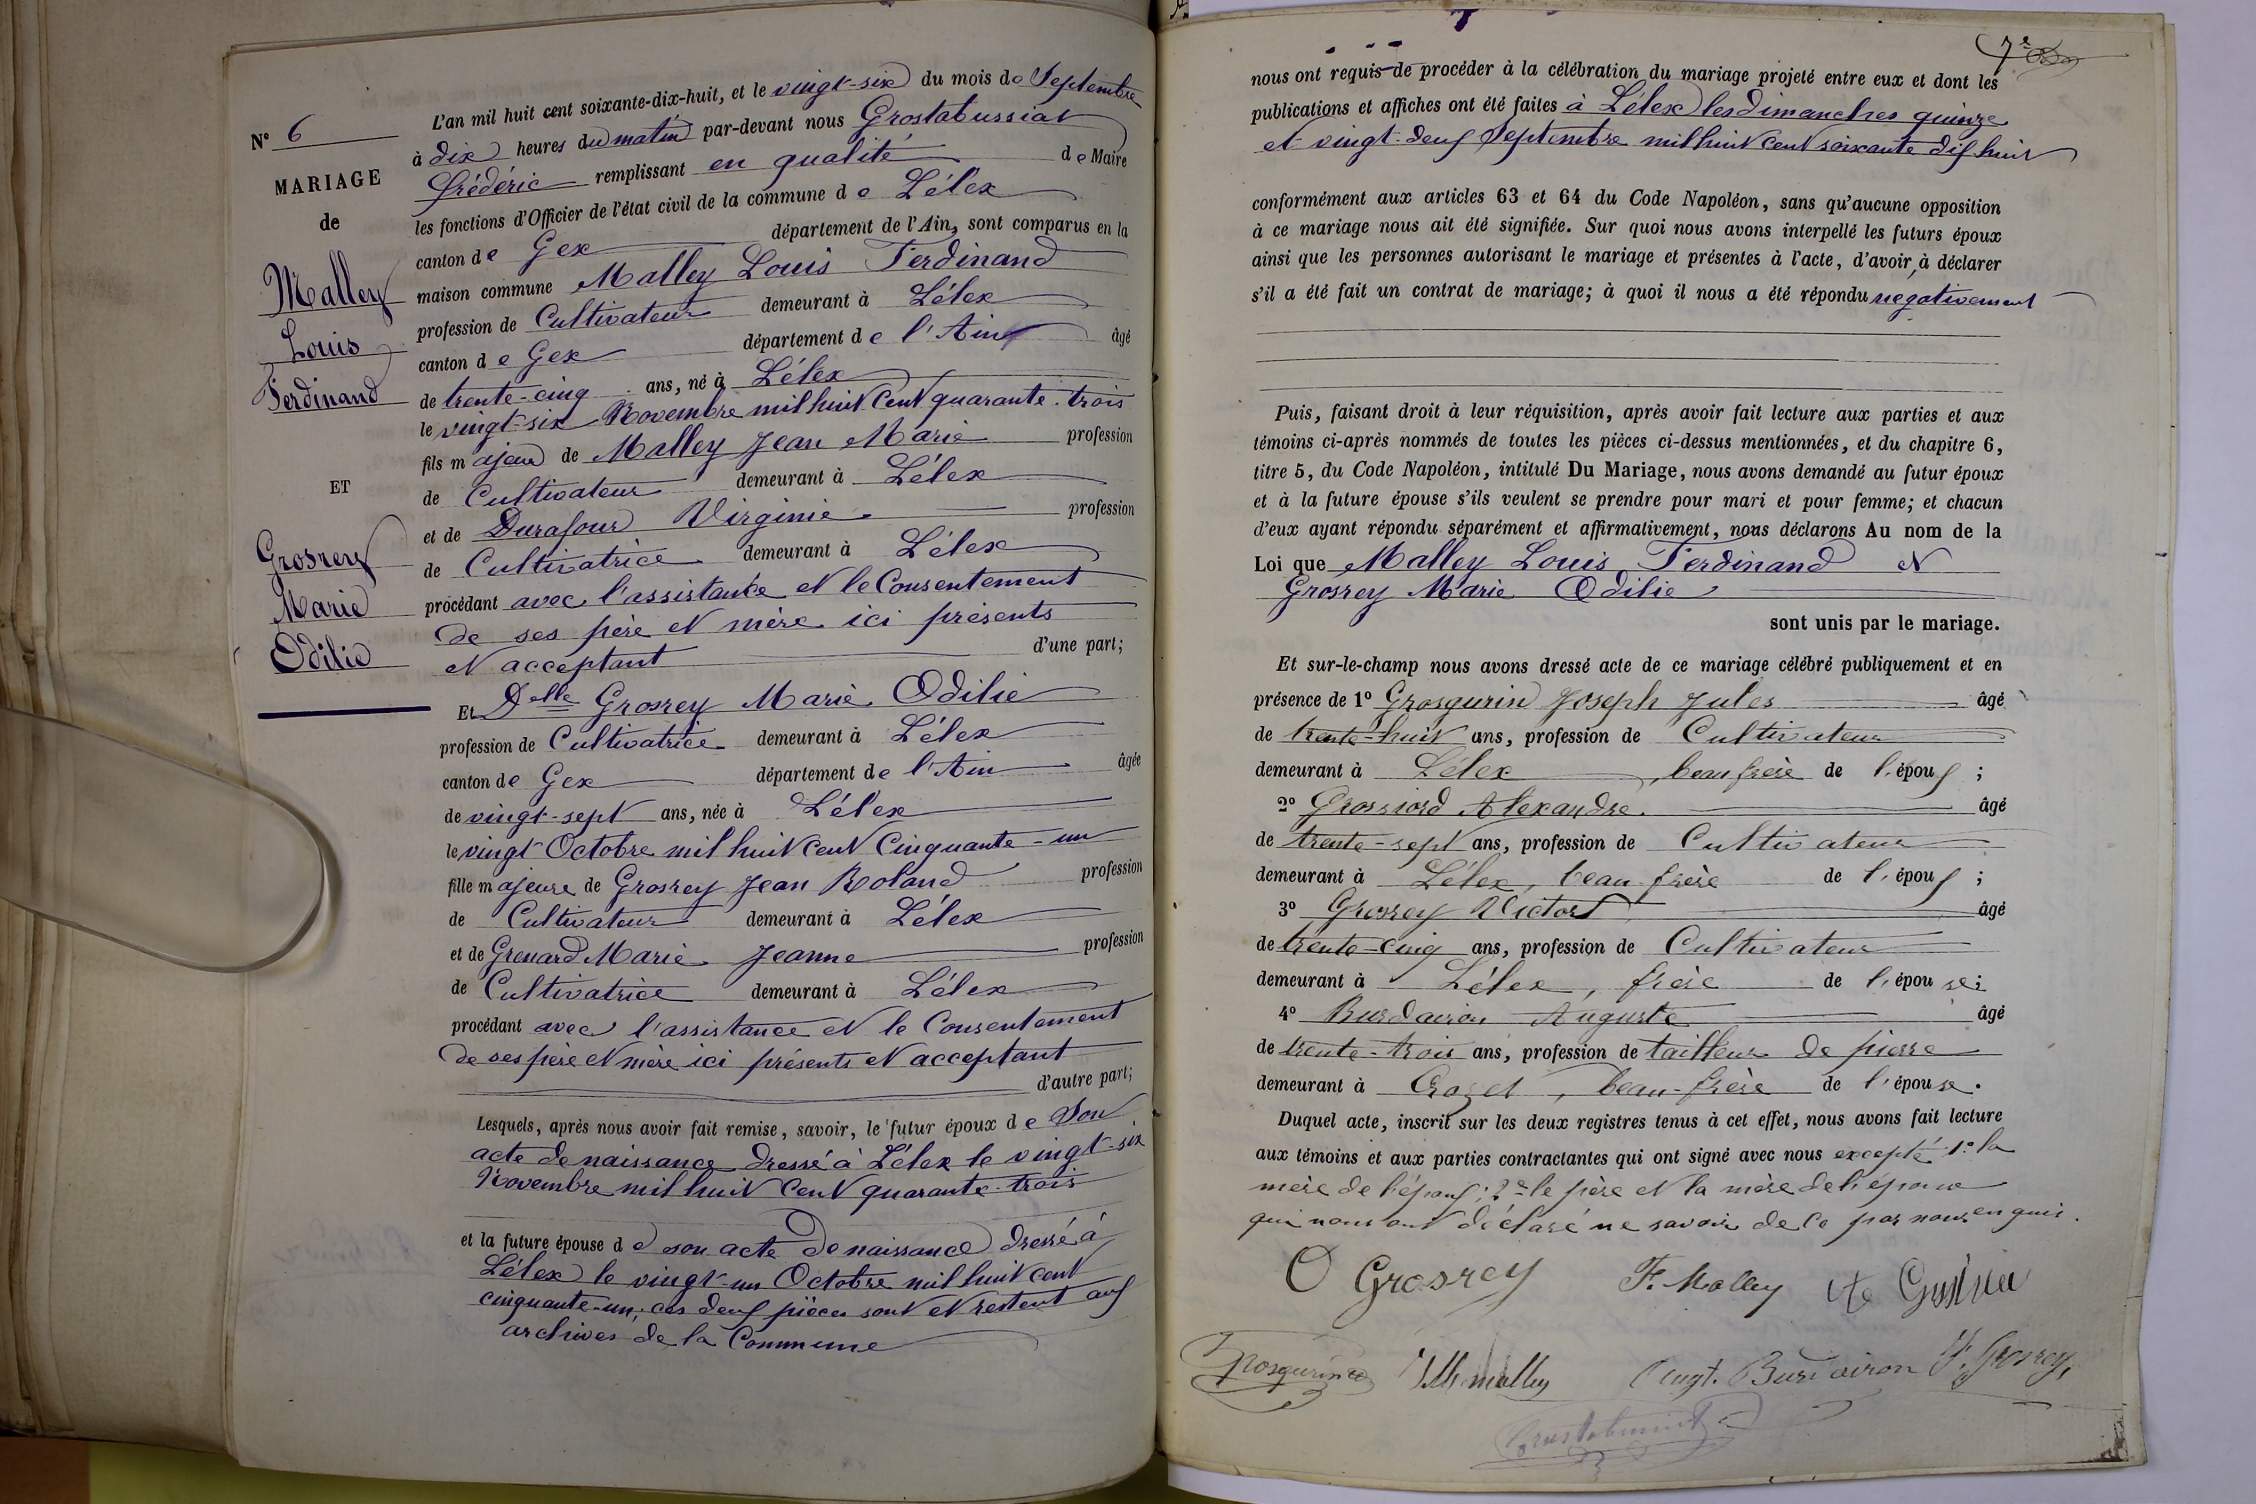 N° 6
MARIAGE
de
Malley
Louis
Ferdinand
ET
Grosrey
Marie
Odilie
L'an mil huit cent soixante-dix-huit, et le vingt-six du mois de Septembre
à dix heures du matin par-devant nous Grostabussiat
Frédéric remplissant en qualité de Maire
les fonctions d'Officier de l'état civil de la commune de Lélex
canton de Gex département de l'Ain, sont comparus en la
maison commune Malley Louis Ferdinand
profession de Cultivateur demeurant à Lélex
canton de Gex département de l'Ain âgé
de trente-cinq ans, né à Lélex
le vingt-six Novembre mil huit Cent quarante-trois
fils majeur de Malley Jean Marie profession
de Cultivateur demeurant à Lélex
et de Durafour Virginie profession
de Cultivatrice demeurant à Lélex
procédant avec l'assistance et le Consentement
de ses père et mère ici présents
et acceptant d'une part;
Et Delle Grosrey Marie Odilie
profession de Cultivatrice demeurant à Lélex
canton de Gex département de l'Ain âgée
de vingt-sept ans, née à Lélex
le vingt Octobre mil huit cent Cinquante-un
fille majeure de Grosrey Jean Roland profession
de Cultivateur demeurant à Lélex
et de Grenard Marie Jeanne profession
de Cultivatrice demeurant à Lélex
procédant avec l'assistance et le Consentement
de ses père et mère ici présents et acceptant
d'autre part;
Lesquels, après nous avoir fait remise, savoir, le futur époux de Son
acte de naissance dressé à Lélex le vingt-six
Novembre mil huit Cent quarante-trois
et la future épouse de son acte de naissance dressé à
Lélex le vingt-un Octobre mil huit cent
cinquante-un; ces deux pièces sont et restent aux
archives de la Commune
7e
nous ont requis de procéder à la célébration du mariage projeté entre eux et dont les
publications et affiches ont été faites à Lélex les dimanches quinze
et vingt-deux Septembre mil huit cent soixante dix huit
conformément aux articles 63 et 64 du Code Napoléon, sans qu'aucune opposition
à ce mariage nous ait été signifiée. Sur quoi nous avons interpellé les futurs époux
ainsi que les personnes autorisant le mariage et présentes à l'acte, d'avoir à déclarer
s'il a été fait un contrat de mariage; à quoi il nous a été répondu négativement
Puis, faisant droit à leur réquisition, après avoir fait lecture aux parties et aux
témoins ci-après nommés de toutes les pièces ci-dessus mentionnées, et du chapitre 6,
titre 5, du Code Napoléon, intitulé Du Mariage, nous avons demandé au futur époux
et à la future épouse s'ils veulent se prendre pour mari et pour femme; et chacun
d'eux ayant répondu séparément et affirmativement, nous déclarons Au nom de la
Loi que Malley Louis Ferdinand et
Grosrey Marie Odilie
sont unis par le mariage.
Et sur-le-champ nous avons dressé acte de ce mariage célébré publiquement et en
présence de 1° Grosgurin Joseph Jules âgé
de trente-huit ans, profession de Cultivateur
demeurant à Lélex, beau frère de l'époux;
2° Grossiord Alexandre. âgé
de trente-sept ans, profession de Cultivateur
demeurant à Lélex, beau frère de l'époux;
3° Grosrey Victor âgé
de trente-cinq ans, profession de Cultivateur
demeurant à Lélex, frère de l'épouse;
4° Burdairon Auguste âgé
de trente-trois ans, profession de tailleur de pierre
demeurant à Crozet, beau-frère de l'épouse.
Duquel acte, inscrit sur les deux registres tenus à cet effet, nous avons fait lecture
aux témoins et aux parties contractantes qui ont signé avec nous excepté 1° la
mère de l'époux; 2e le père et la mère de l'épouse
qui nous ont déclaré ne savoir de ce par nous enquis.
O Grosrey F. Malley
Grosgurin Malley Augt. Burdairon V. Grosrey
Grostabussiat